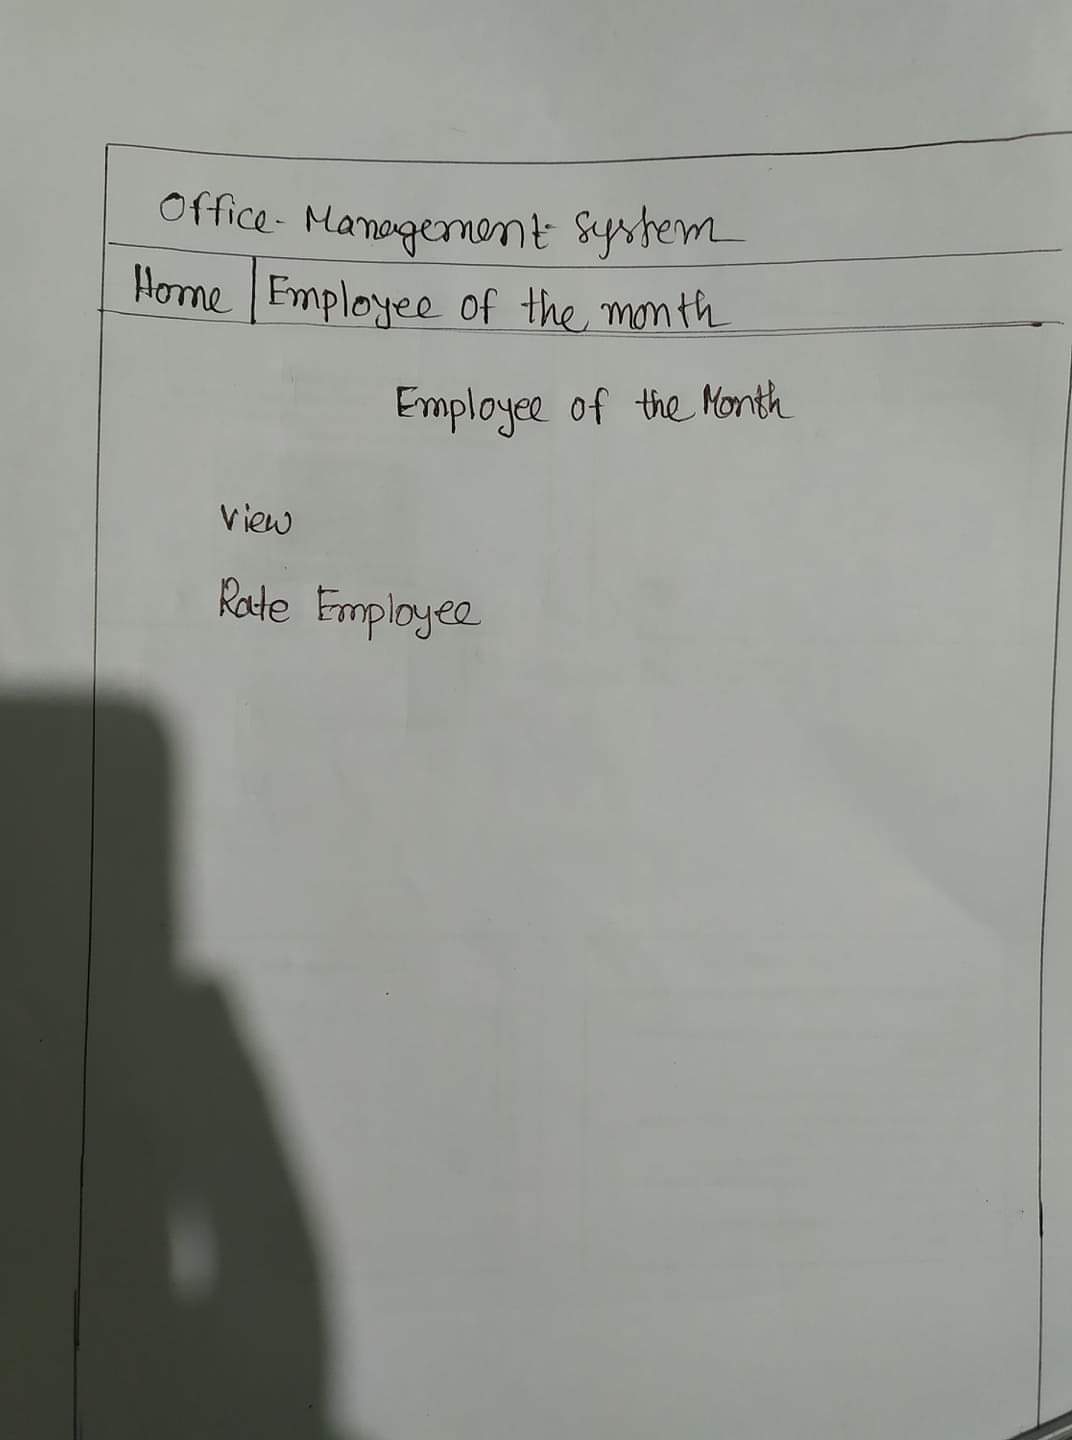 Office-Management System
Home | Employee of the month
Employee of the Month
View
Rate Employee